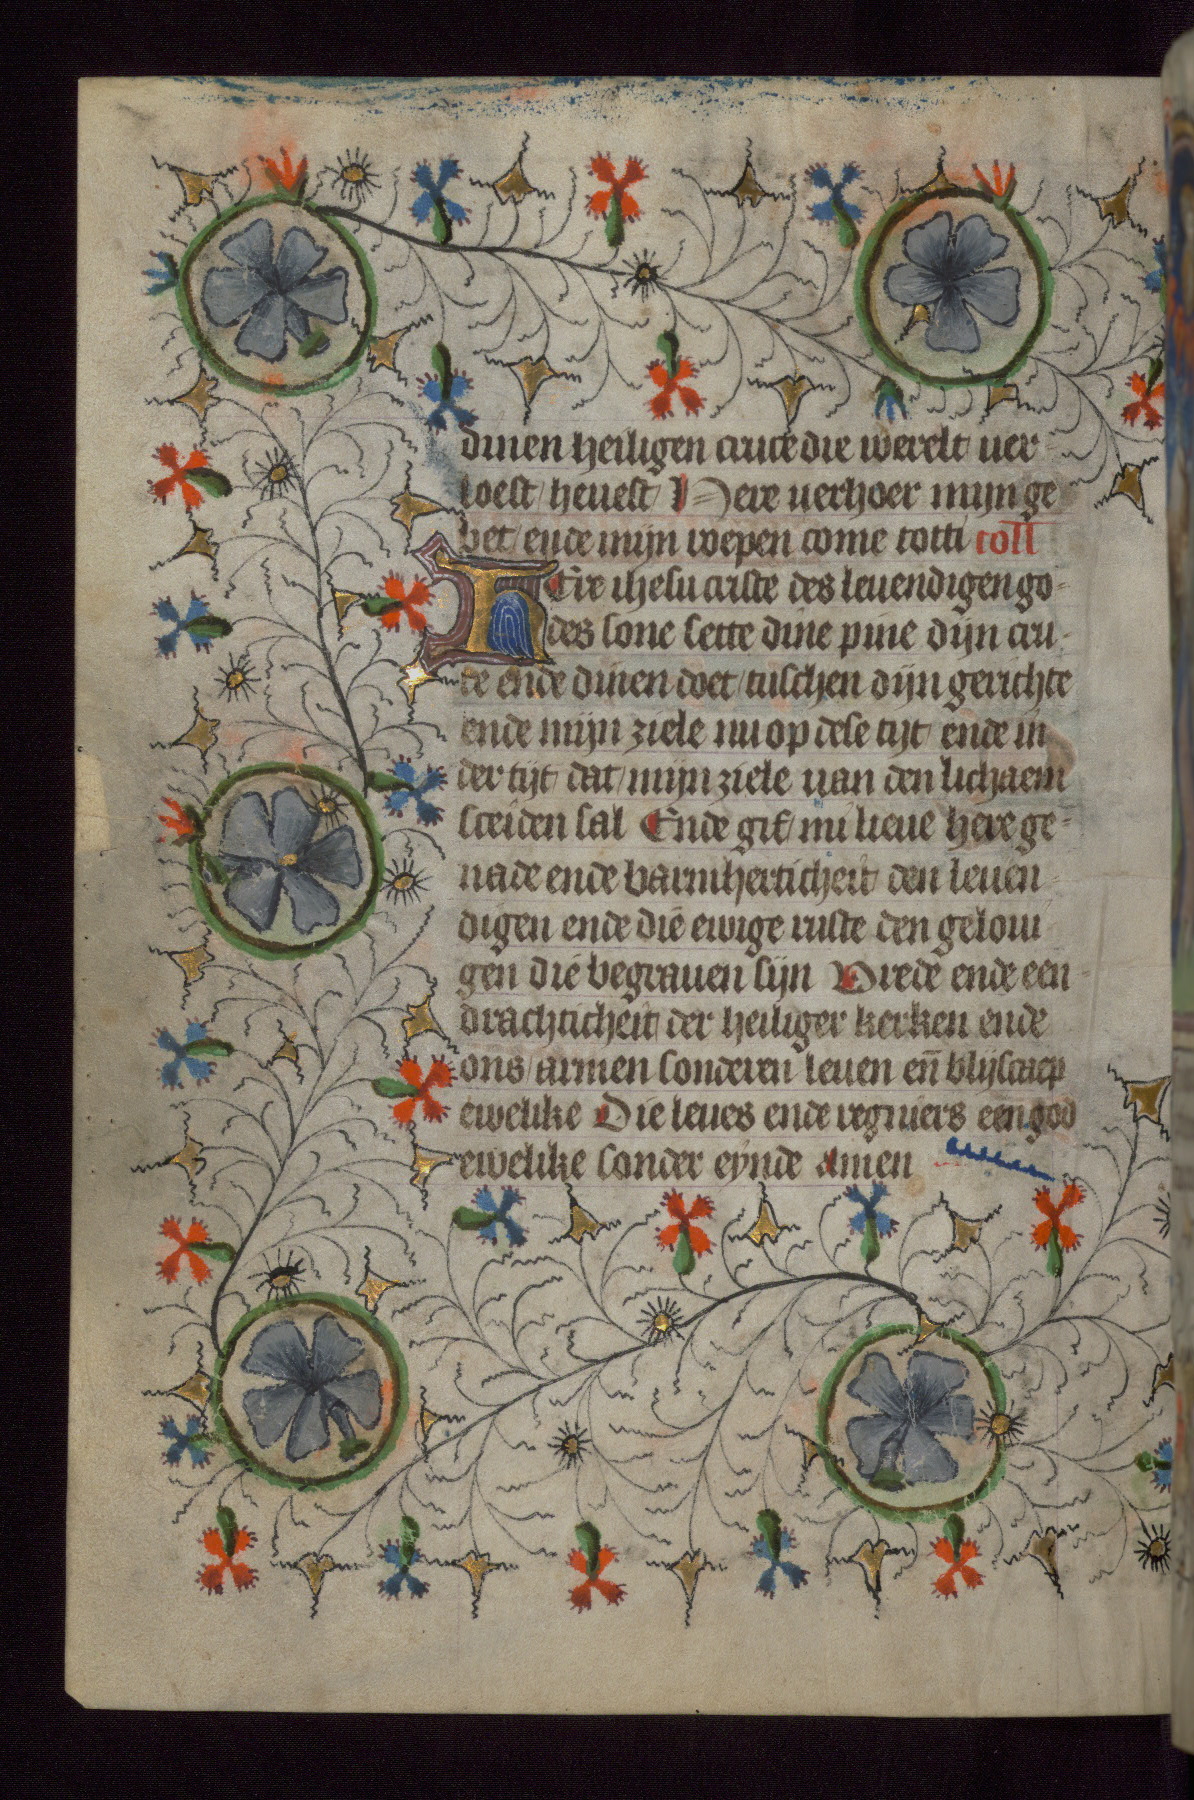 dinen heiligen cruce die werelt ver
loest heuest Here verhoer mijn ge
bet ende mijn roepen come totti coll
HEre ihesu criste des leuendigen go-
des sone sette dine pine dijn cru-
ce ende dinen doet tuschen dijn gerichte
ende mijn ziele nu op dese tijt ende in
der tijt dat mijn ziele van den lichaem
sceiden sal Ende gif mi lieue here ge-
nade ende barmherticheit den leuen
digen ende die ewige ruste den geloui
gen die begrauen sijn Vrede ende een-
drachticheit der heiliger kerken ende
ons armen sonderen leuen eñ blijscaep
ewelike Die leues ende regniers een god
ewelike sonder eynde amen